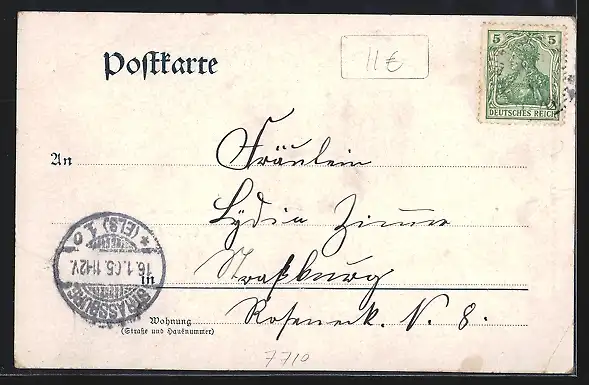 Postkarte
11 €
5 5
DEUTSCHES REICH
An
Fräulein
Lydia Zimmer
in
Straßburg
Wohnung
(Straße und Hausnummer)
Roseneck. N. 8.
STRASSBURG
16.1.05. 11-12V.
* (ELS) 1 o
7710